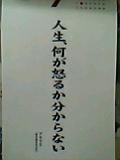 人生、何が怒るか分からない